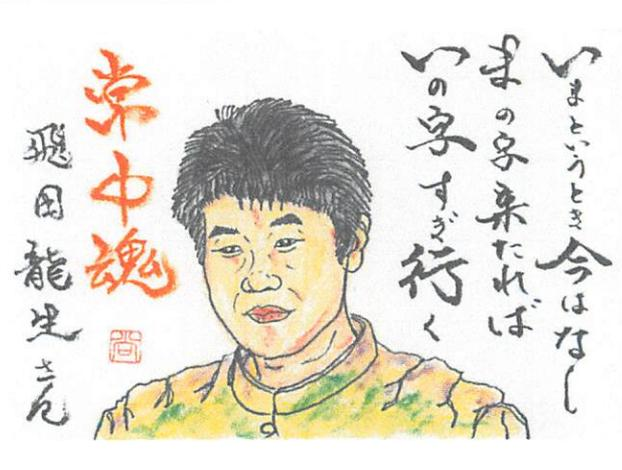 いまというとき今はなし
まの字来たれば
いの字すぎ行く
常中魂
飛田龍生さん